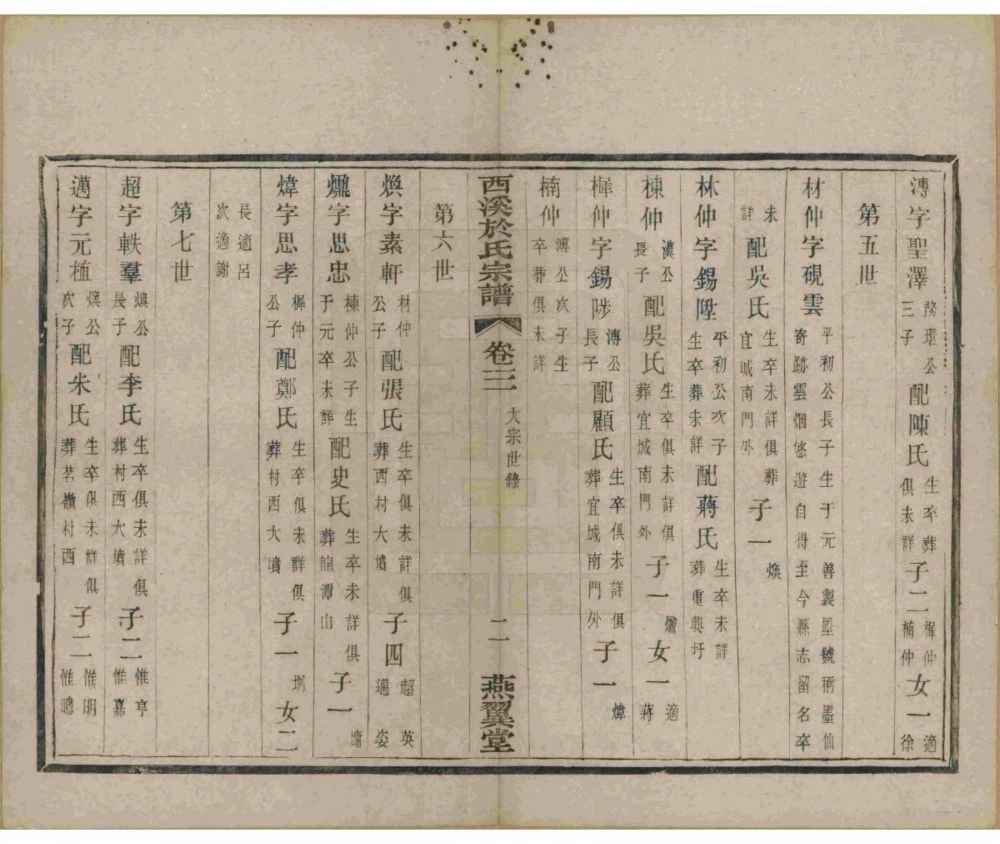 溥字聖澤 公三子 配陳氏 生卒葬俱未詳 子二 楎仲 楠仲 女一 適徐
第五世
材仲字硯雲 平初公長子生于元善製墨號稱墨仙寄跡雲烟悠遊自得至今縣志留名卒
未詳 配吳氏 生卒未詳俱葬宜城南門外 子一 煥
林仲字錫陞 平初公次子生卒葬未詳 配蔣氏 生卒未詳葬重興圩
棟仲 公長子 配吳氏 生卒俱未詳俱葬宜城南門外 子一 女一 適蔣
楎仲字錫陟 溥公長子 配顧氏 生卒俱未詳俱葬宜城南門外 子一 煒
楠仲 溥公次子生卒葬俱未詳
西溪於氏宗譜 卷三 大宗世錄 二 燕翼堂
第六世
煥字素軒 材仲公子 配張氏 生卒俱未詳俱葬西村大墳 子四 超 英 邁 姿
字思忠 棟仲公子生于元卒未詳 配史氏 生卒未詳俱葬龍潭山 子一 墉
煒字思孝 楎仲公子 配鄭氏 生卒俱未詳俱葬村西大墳 子一 坰 女二
長適呂次適謝
第七世
超字軼羣 煥公長子 配李氏 生卒俱未詳俱葬村西大墳 子二 惟亨 惟嘉
邁字元植 煥公次子 配朱氏 生卒俱未詳俱葬茗嶺村西 子二 惟明 惟聰